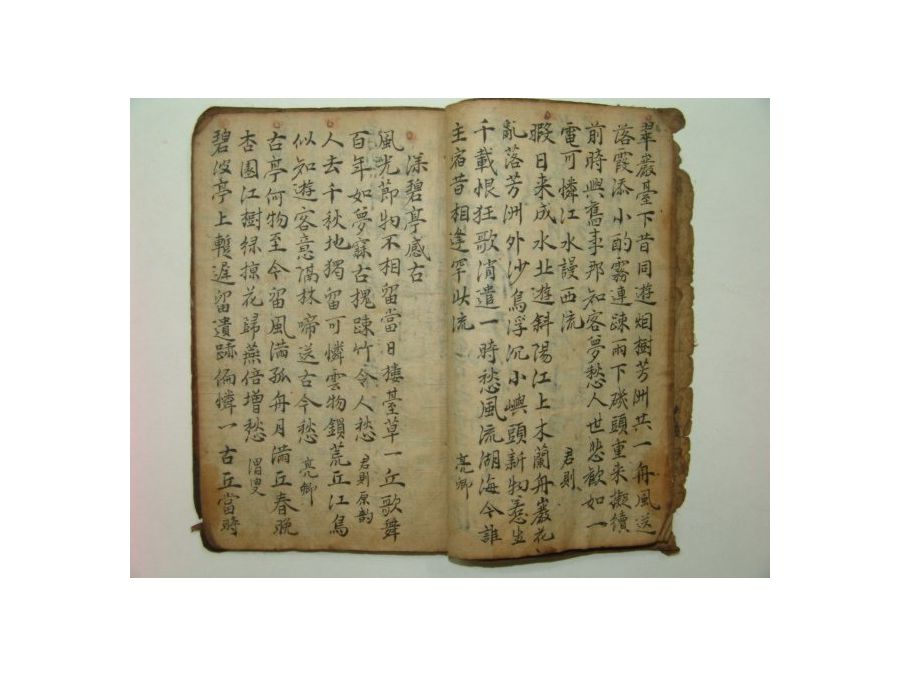 翠巖臺下昔同遊烟樹芳洲共一舟風送
落霞添小酌霧連踈雨下磯頭重來擬續
前時興舊事那知客夢愁人世悲歡如一
電可憐江水謾西流 君則
暇日来成水北遊斜陽江上木蘭舟巖花
亂落芳洲外沙鳥浮沉小嶼頭新物惹生
千載恨狂歌消遣一時愁風流湖海今誰
主宿昔相逢罕此流 亮卿
漾碧亭感古
風光節物不相留當日樓臺草一丘歌舞
百年如夢寐古槐踈竹令人愁 君則原韵
人去千秋地獨留可憐雲物鎖荒丘江鳥
似知遊客意隔林啼送古今愁 亮卿
古亭何物至今留風滿孤舟月滿丘春晚
杏園江樹綠掠花歸燕倍增愁 渭叟
碧波亭上暫遲留遺跡偏憐一古丘當時